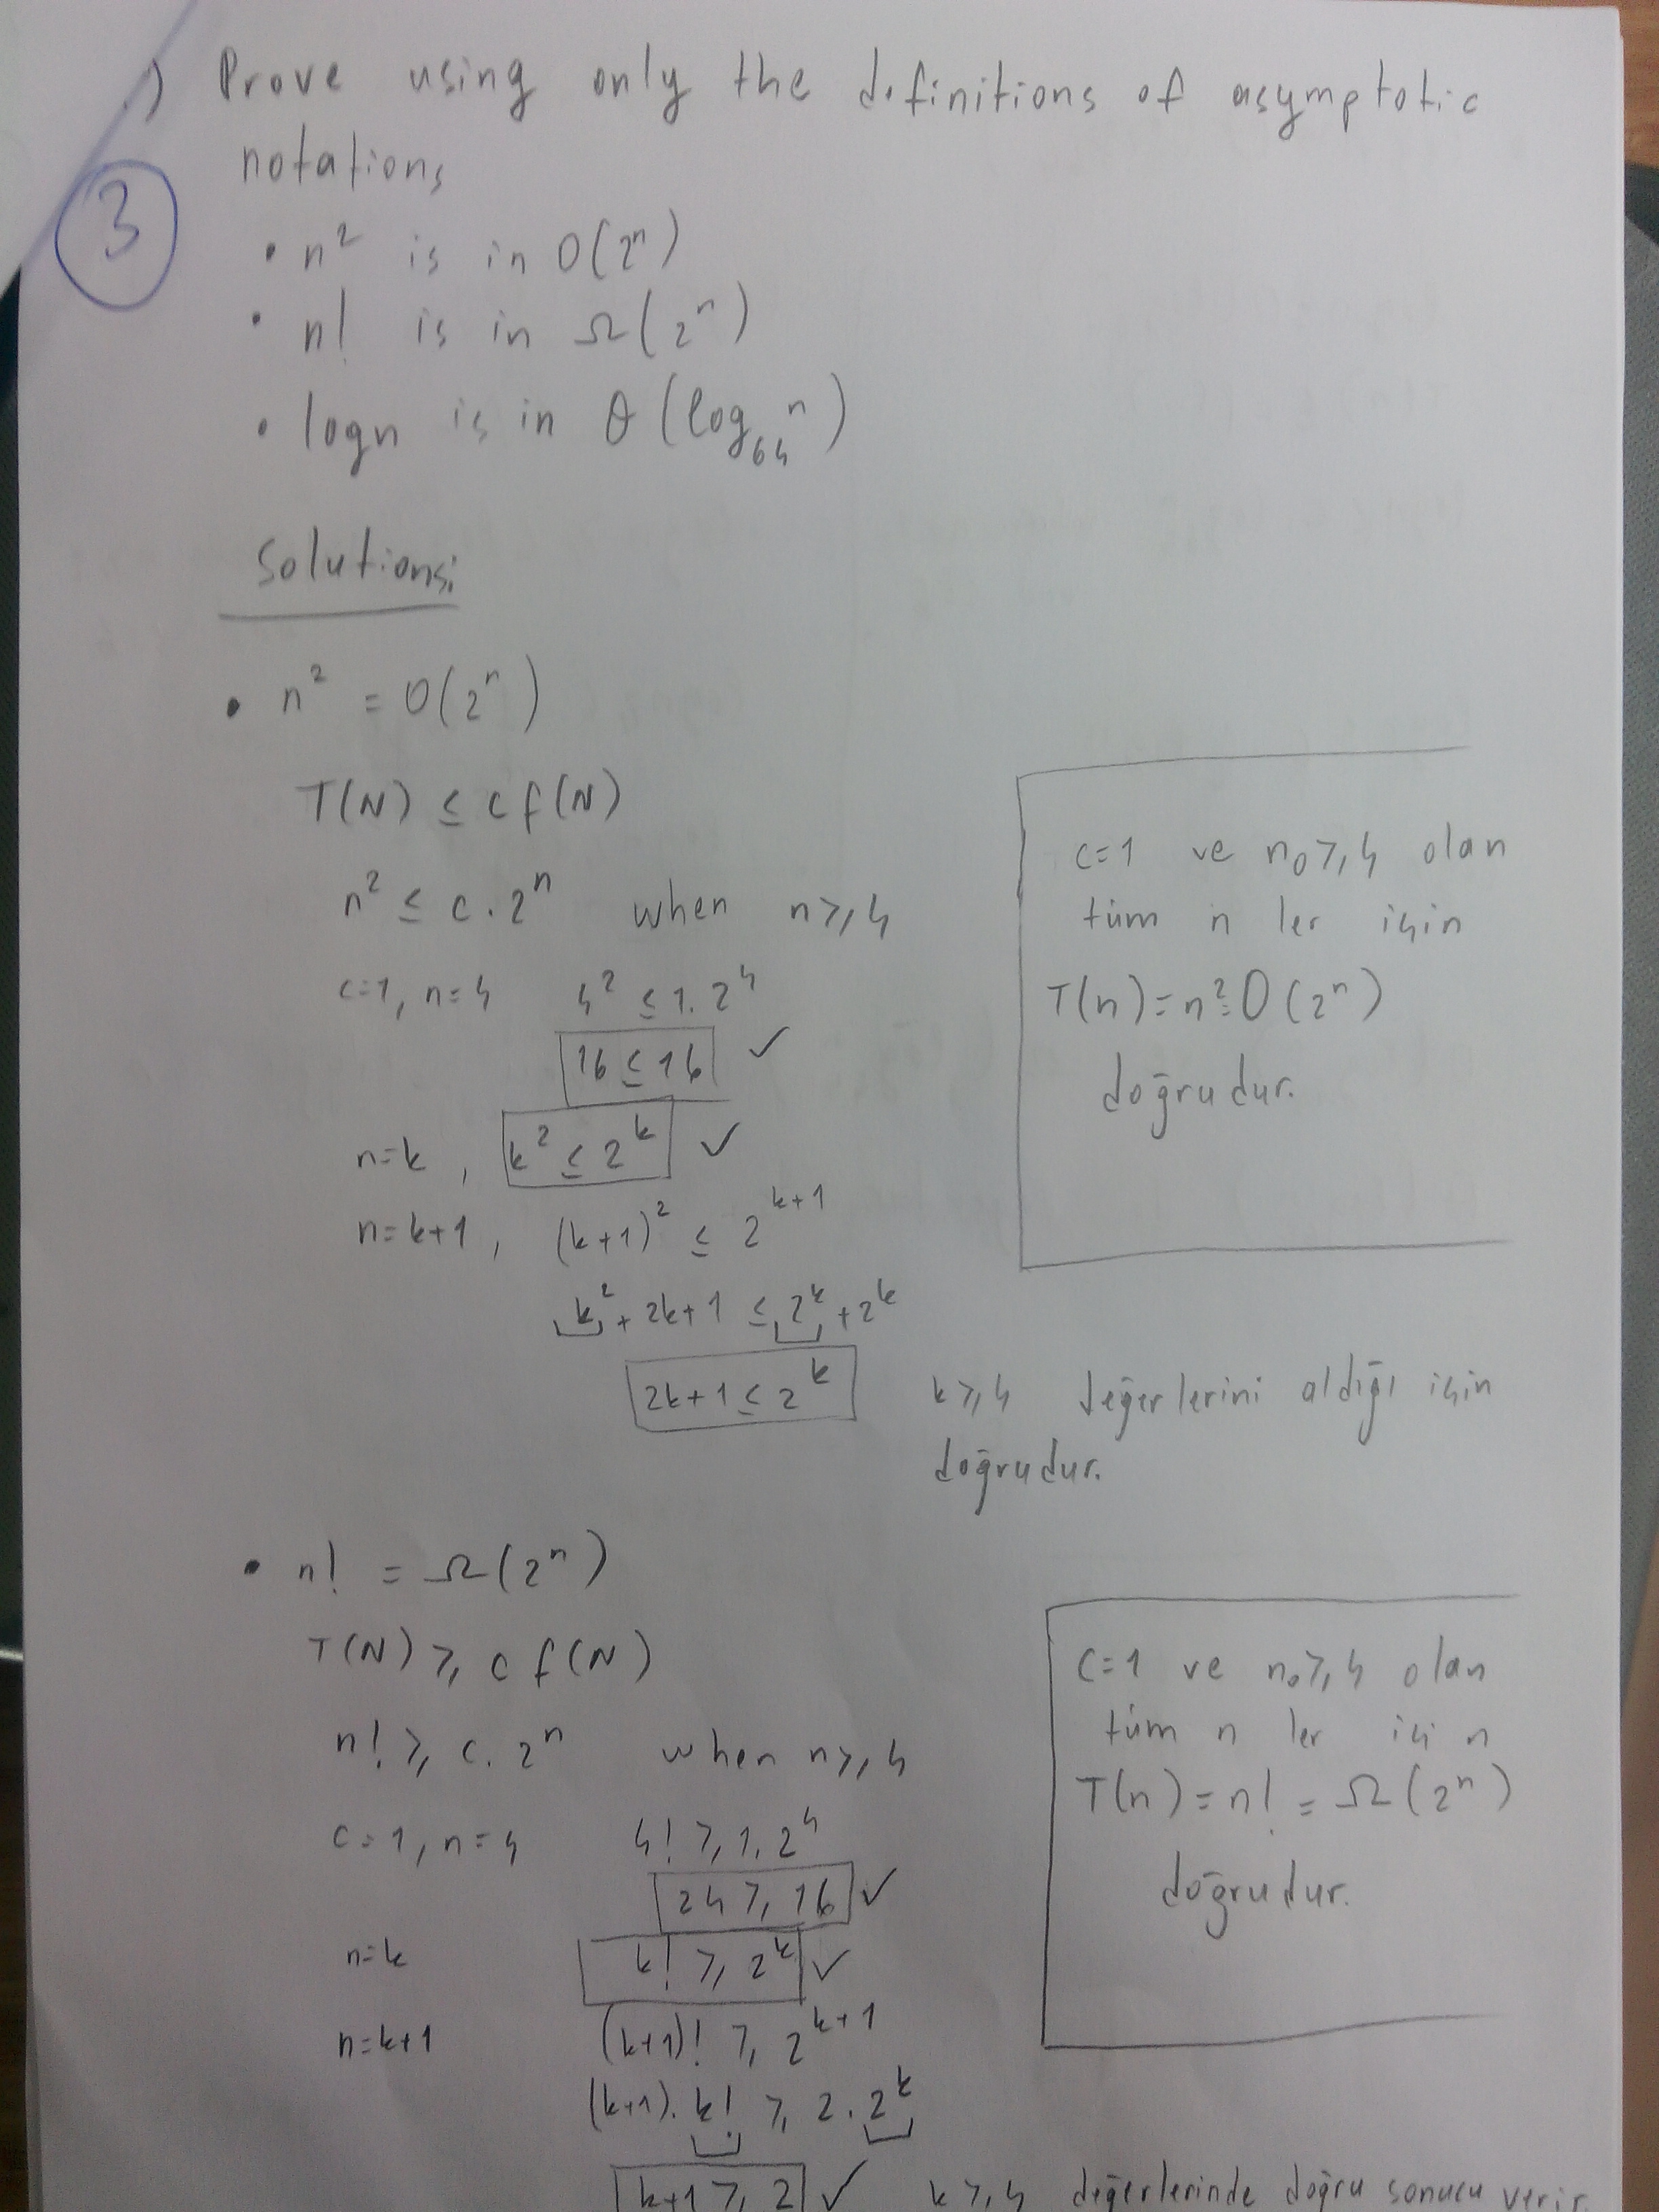 .) Prove using only the definitions of asymptotic
notations
3
• n² is in O(2ⁿ)
• n! is in Ω(2ⁿ)
• logn is in θ(log₆₄ n)
Solutions:
• n² = O(2ⁿ)
T(N) ≤ c f(N)
n² ≤ c . 2ⁿ when n ≥ 4
c=1, n=4 4² ≤ 1. 2⁴
16 ≤ 16 ✓
n=k, k² ≤ 2ᵏ ✓
n=k+1, (k+1)² ≤ 2ᵏ⁺¹
k² + 2k+1 ≤ 2ᵏ + 2ᵏ
2k+1 ≤ 2ᵏ k ≥ 4 değerlerini aldığı için
doğrudur.
c=1 ve n₀ ≥ 4 olan
tüm n ler için
T(n) = n² = O(2ⁿ)
doğrudur.
• n! = Ω(2ⁿ)
T(N) ≥ c f(N)
n! ≥ c. 2ⁿ when n ≥ 4
c=1, n=4 4! ≥ 1. 2⁴
24 ≥ 16 ✓
n=k k! ≥ 2ᵏ ✓
n=k+1 (k+1)! ≥ 2ᵏ⁺¹
(k+1). k! ≥ 2 . 2ᵏ
k+1 ≥ 2 ✓ k ≥ 4 değerlerinde doğru sonucu verir.
c=1 ve n₀ ≥ 4 olan
tüm n ler için
T(n) = n! = Ω(2ⁿ)
doğrudur.